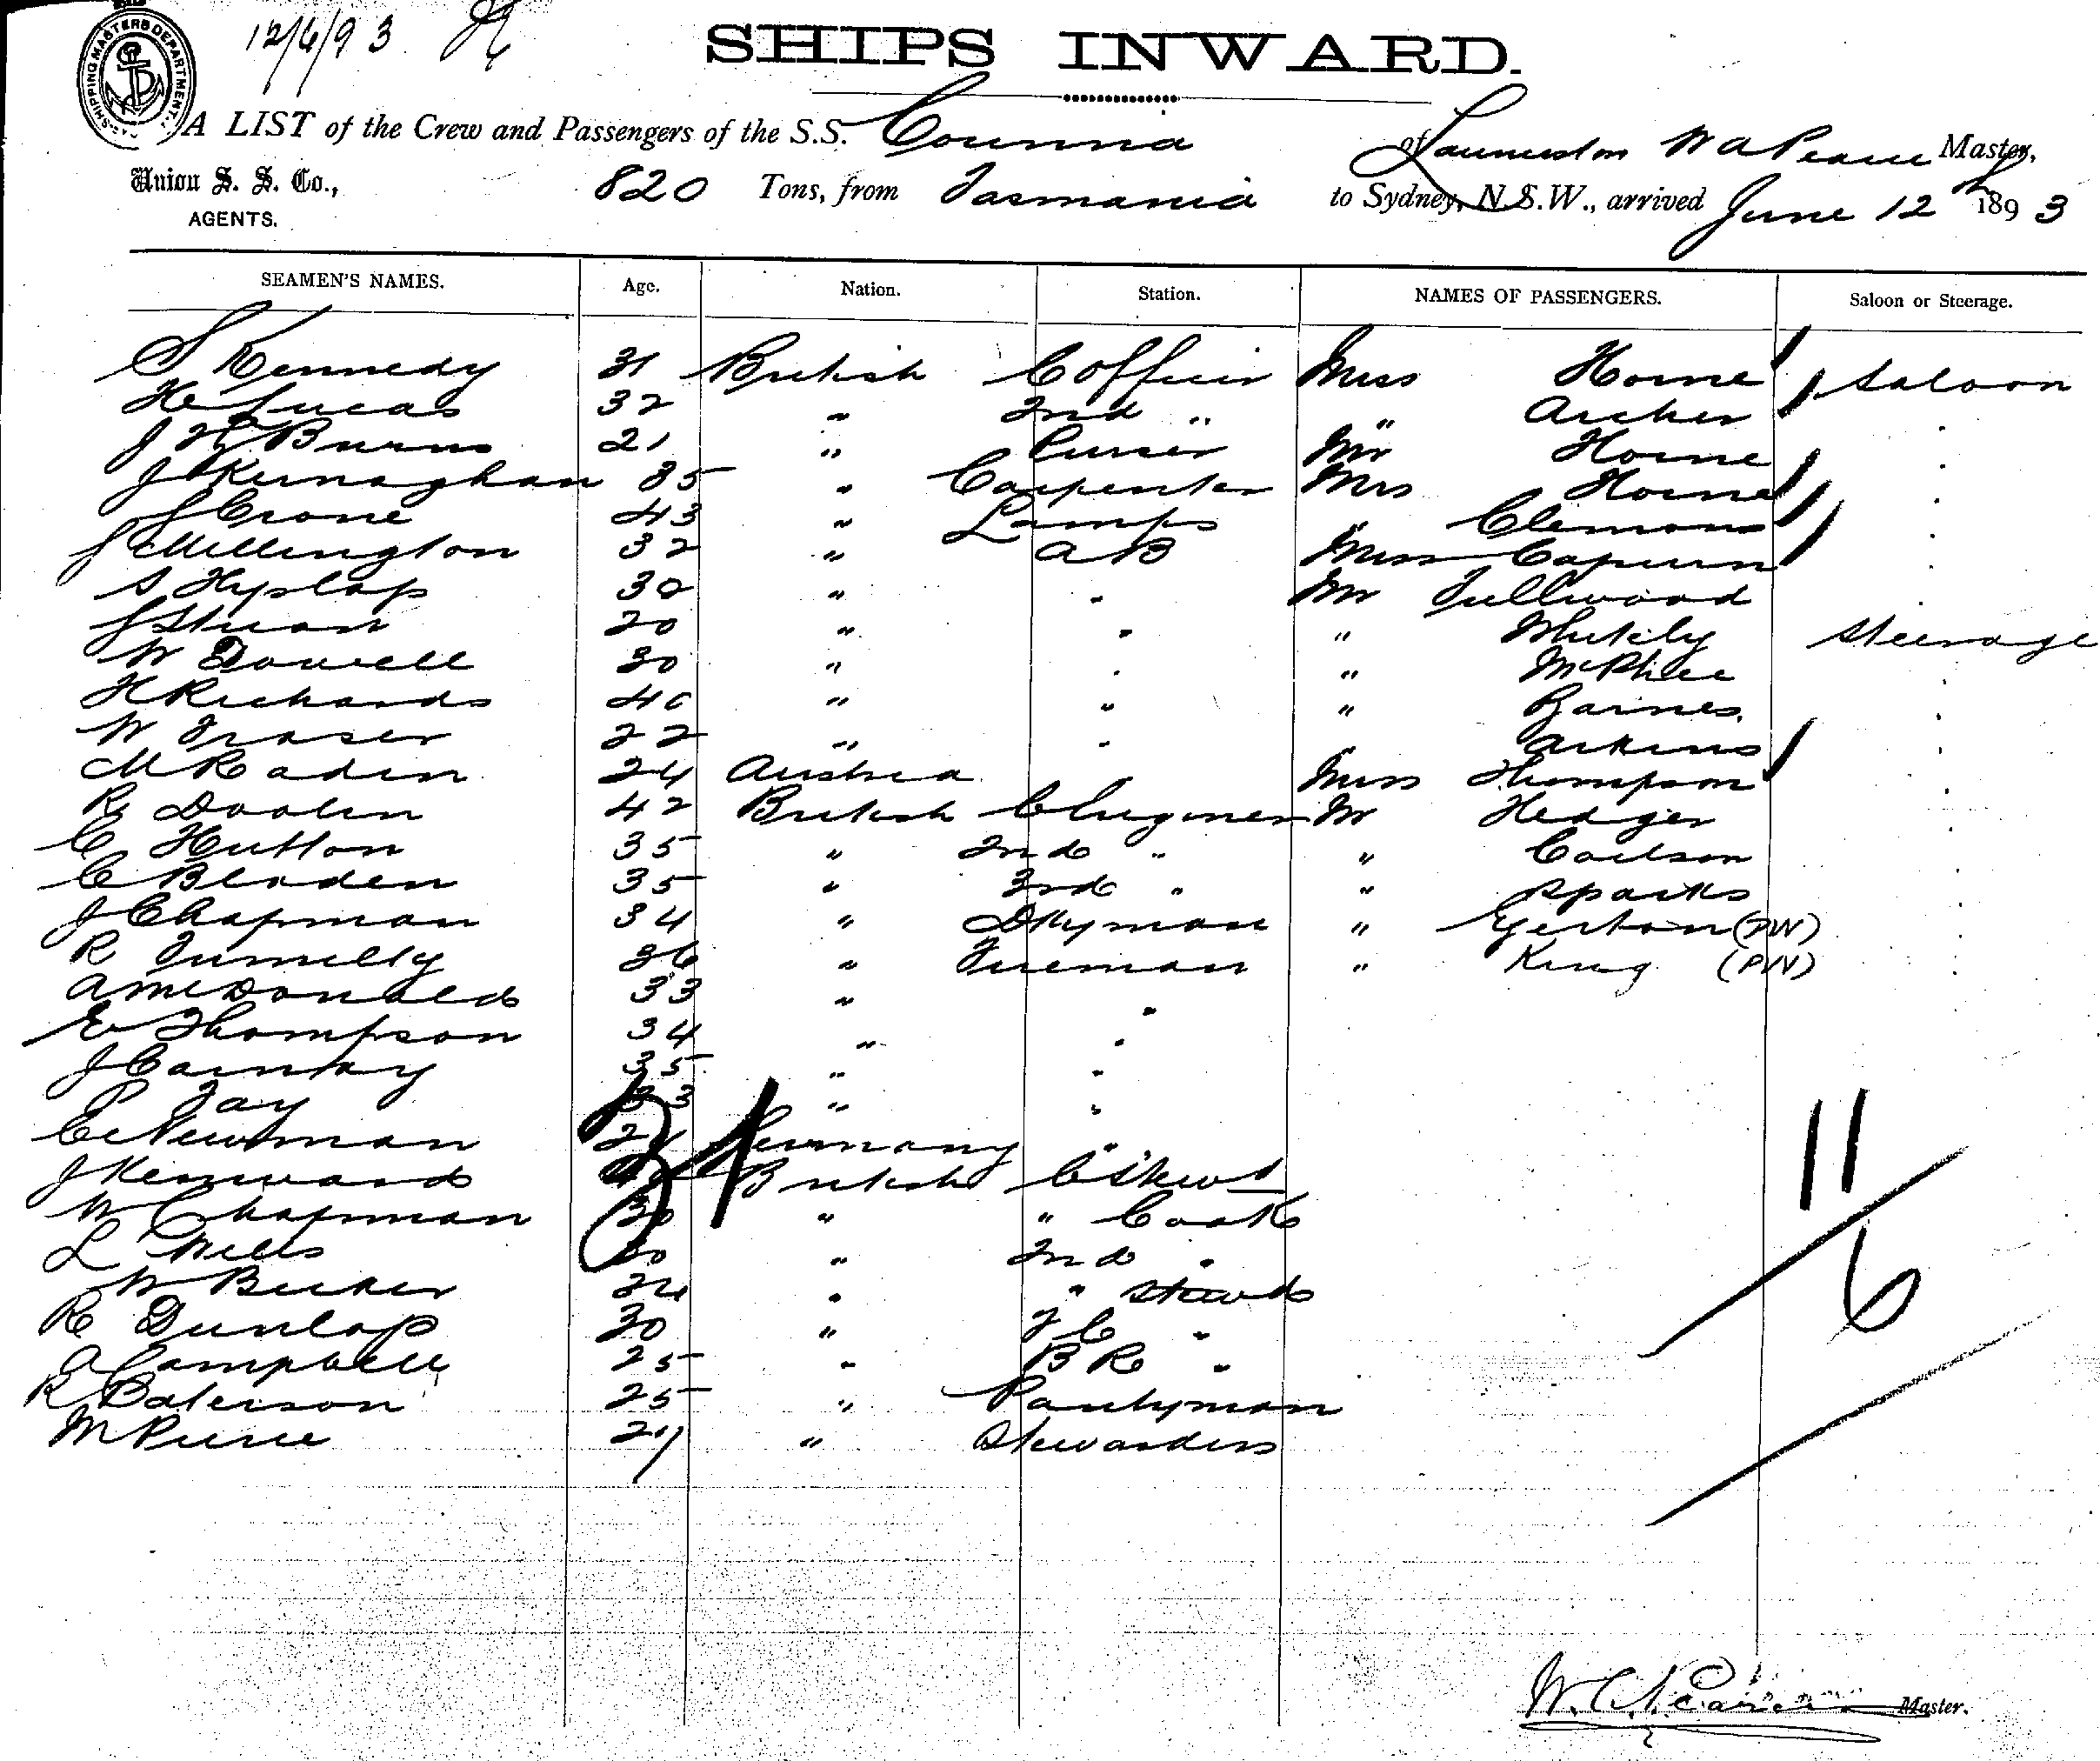 12/6/93
SHIPPING MASTERS DEPARTMENT
SHIPS INWARD.
A LIST of the Crew and Passengers of the S.S. Corinna of Launceston W A Pearce Master,
Union S. S. Co., AGENTS. 820 Tons, from Tasmania to Sydney, N.S.W., arrived June 12th 1893
SEAMEN'S NAMES. Age. Nation. Station. NAMES OF PASSENGERS. Saloon or Steerage.
S Kennedy 31 British C Officer Miss Horne Saloon
H Lucas 32 " 2nd " " Archer "
J H Burns 21 " Purser Mr Horne "
J Kernaghan 35 " Carpenter Mrs Horne "
J Crone 43 " Lamps " Clemons "
J Millington 32 " A B Miss "
S Hyslop 30 " " Mr Fullwood "
J Stuart 20 " " " Whitely Steerage
W Dowell 30 " " " McPhee "
H Richards 40 " " " Barnes "
W Fraser 22 " " " Atkins "
M Radin 24 Austria Miss Thompson "
R Doolen 42 British C Enginer Mr Hedger "
C Hutton 35 " 2nd " " Coulson "
C Bladen 35 " 3rd " " Sparks "
J Chapman 34 " Dkyman " Egerton (PW) "
R 36 " Fireman " King (PW)
A McDonald 33 " "
E Thompson 34 " "
J 35 " "
P Fay 33 " "
C Newman Germany "
J Kenward British C Stewd
W Chapman 30 " " Cook
L Wells " 2nd "
W Becker 24 " " Stewd
R Dunlop 30 " F C "
A Campbell 25 " B R "
R Paterson 25 " Pantryman
M Pierce 29 " Stewardess
31
11
6
W. A. Pearce Master.